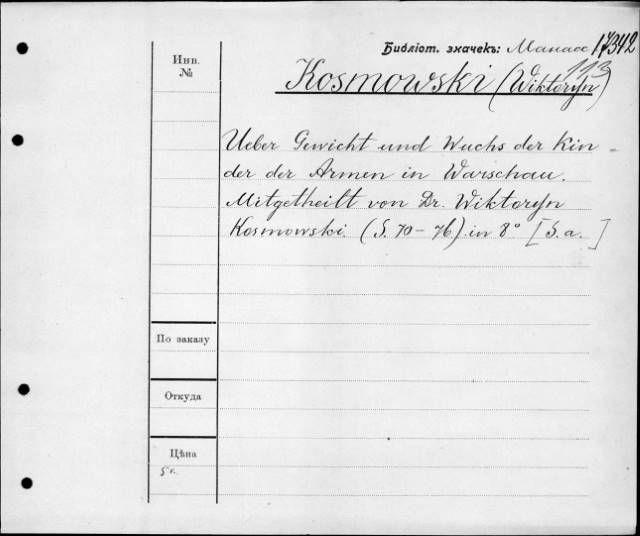 Библіот. значекъ: Манасс 17342
113
Инв.
№
Kosmowski (Wiktoryn)
Ueber Gewicht und Wuchs der Kin-
der der Armen in Warschau.
Mitgetheilt von Dr. Wiktoryn
Kosmowski. (S. 70-76). in 8° [S. a. ]
По заказу
Откуда
Цѣна
5 к.